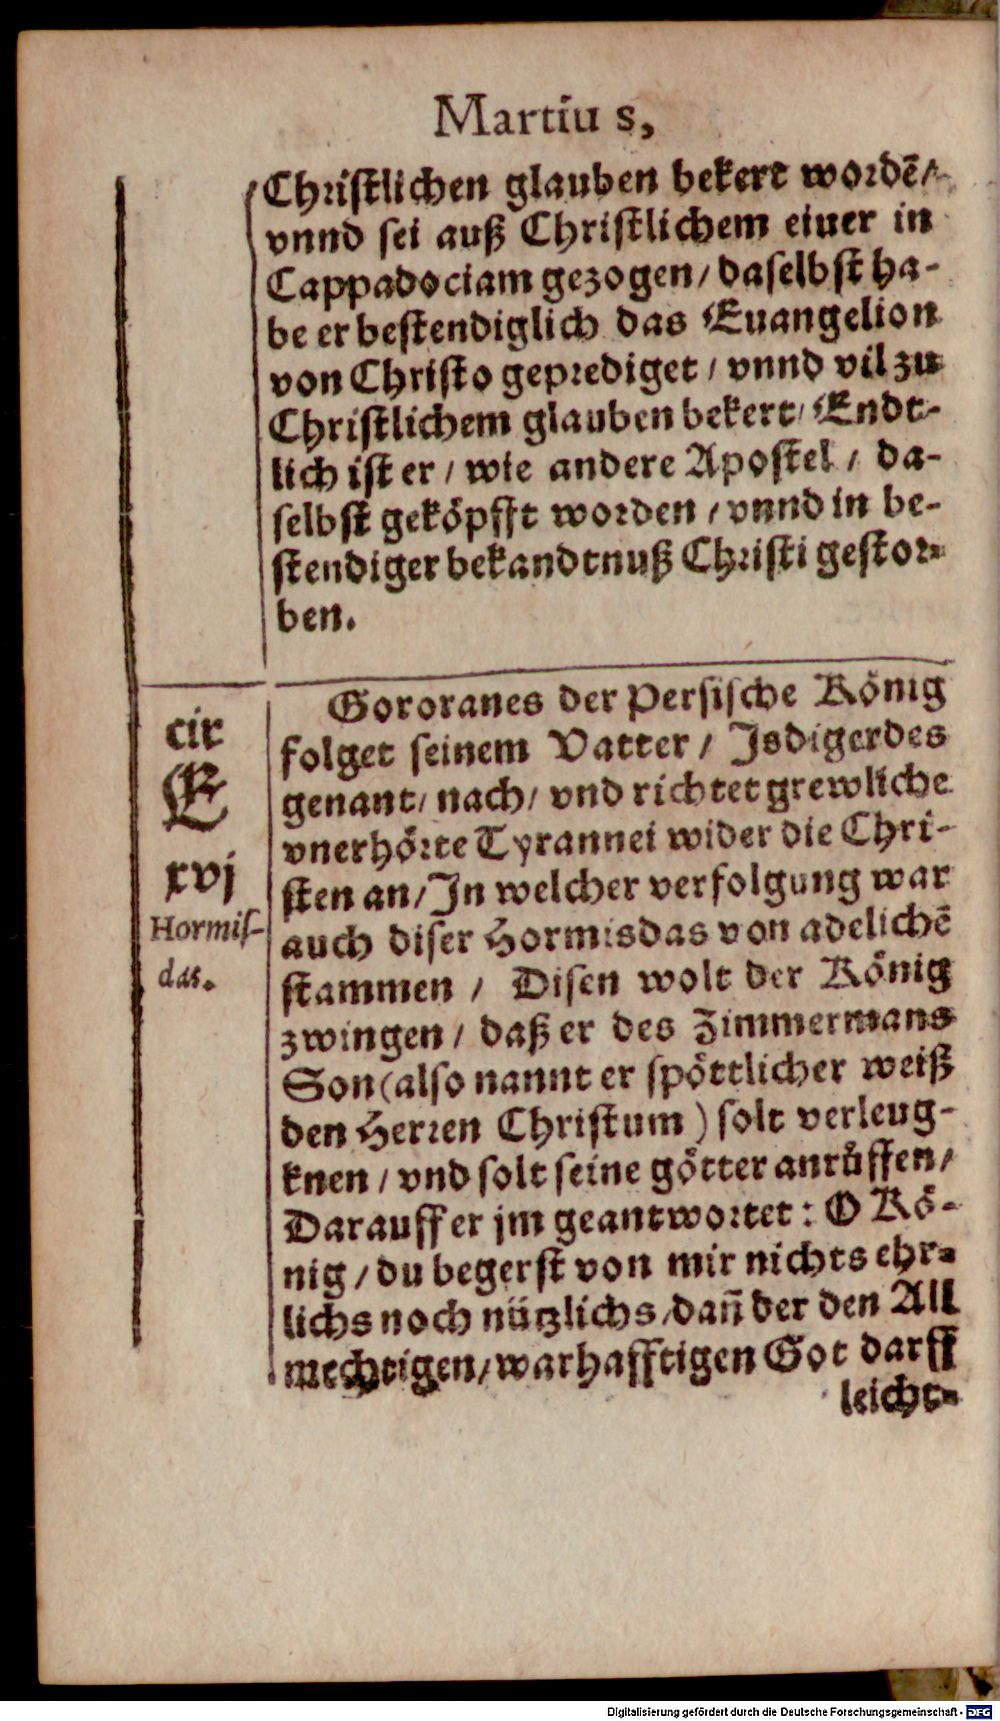 Martius,
Christlichen glauben bekert wordē/
vnnd sei auß Christlichem eiuer in
Cappadociam gezogen/ daselbst ha-
be er bestendiglich das Euangelion
von Christo geprediget/ vnnd vil zu
Christlichem glauben bekert/ Endt-
lich ist er/ wie andere Apostel/ da-
selbst geköpfft worden/ vnnd in be-
stendiger bekandtnuß Christi gestor-
ben.
cir
E
xvj
Hormis-
das.
Gororanes der Persische König
folget seinem Vatter/ Isdigerdes
genant/ nach/ vnd richtet grewliche
vnerhörte Tyrannei wider die Chri-
sten an/ In welcher verfolgung war
auch diser Hormisdas von adelichē
stammen/ Disen wolt der König
zwingen/ daß er des Zimmermans
Son (also nannt er spöttlicher weiß
den Herren Christum) solt verleug-
knen/ vnd solt seine götter anrůffen/
Darauff er jm geantwortet: O Kö-
nig/ du begerst von mir nichts ehr-
lichs noch nützlichs/ dañ der den All
mechtigen/ warhafftigen Got darff
leicht-
Digitalisierung gefördert durch die Deutsche Forschungsgemeinschaft - DFG